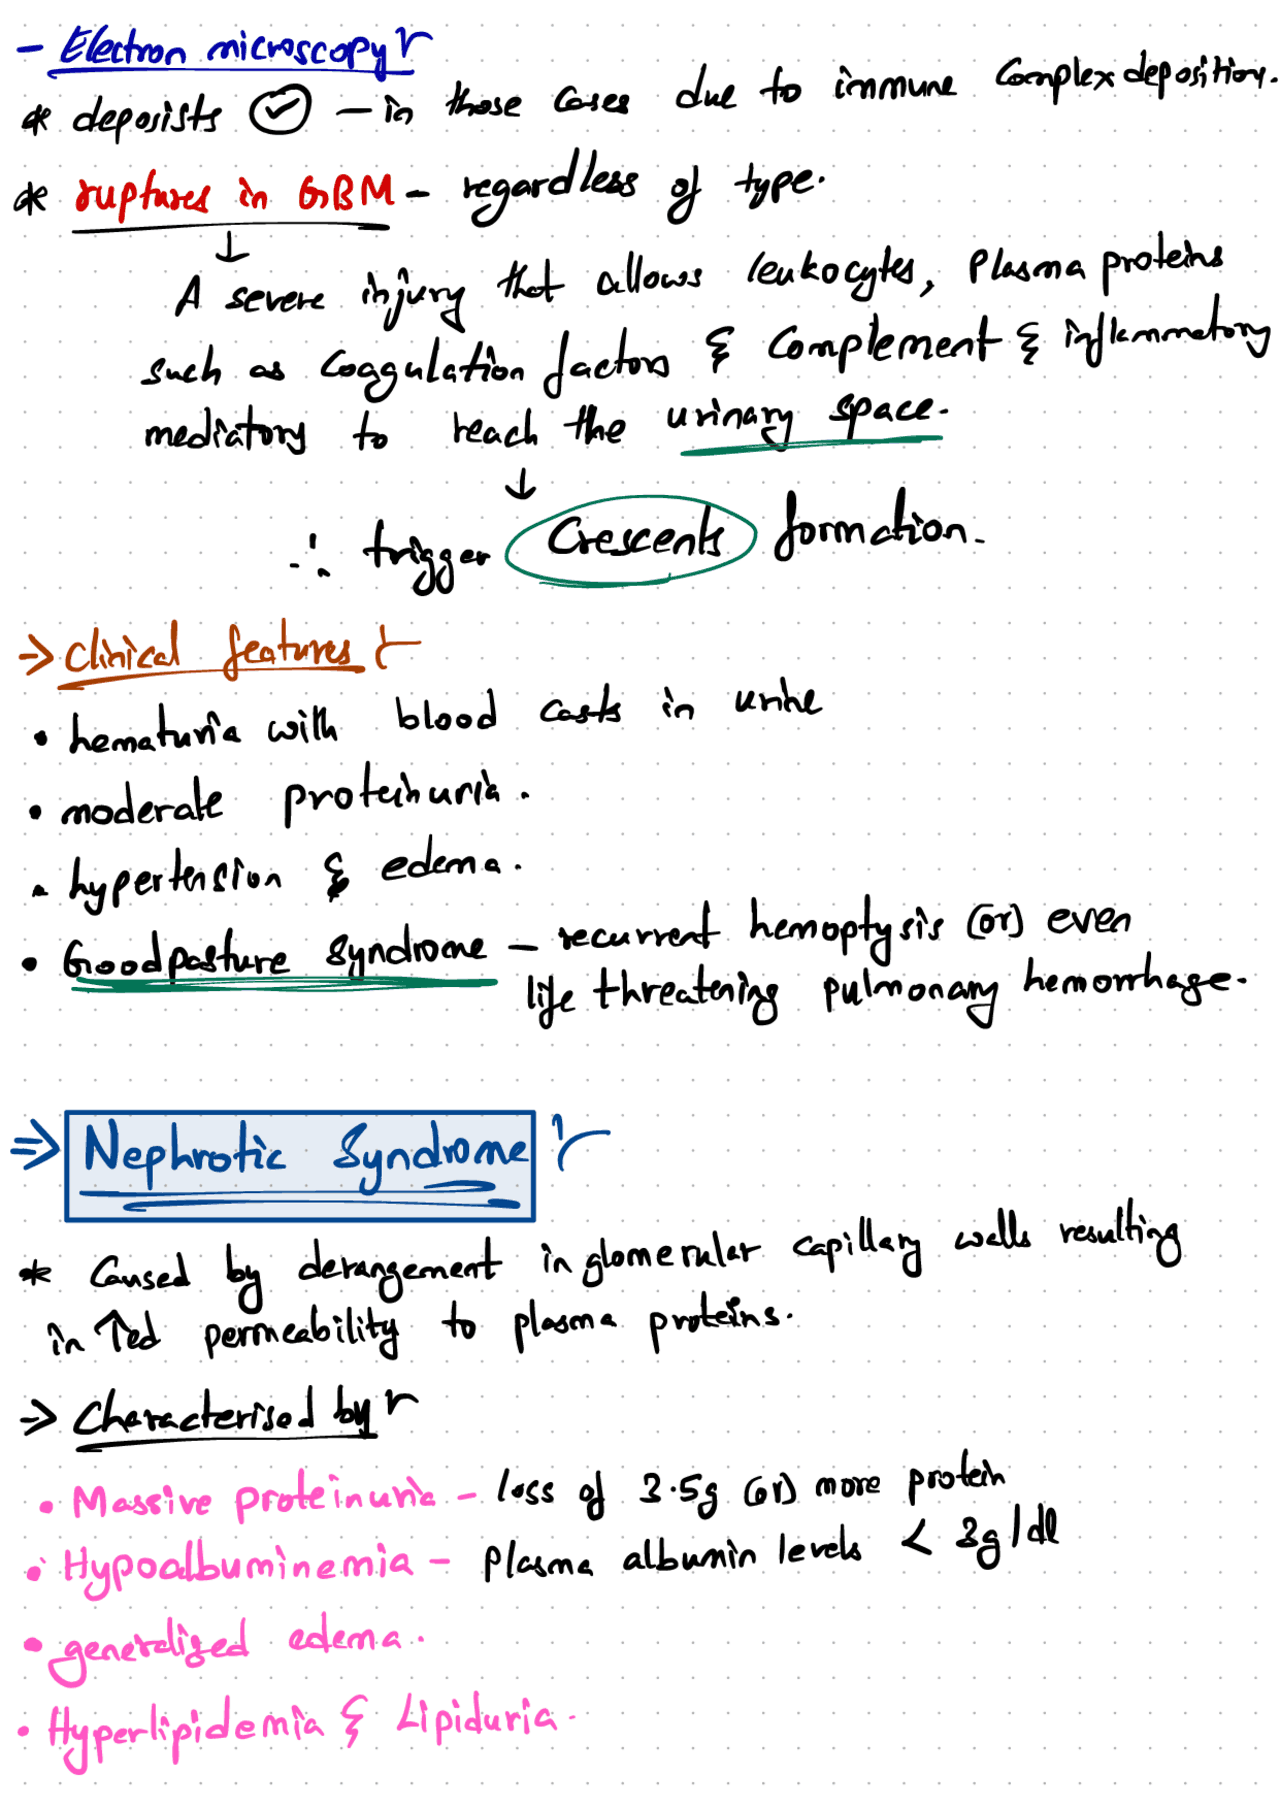 - Electron microscopy :-
* deposists ✓ - in those cases due to immune complex deposition.
* ruptures in GBM - regardless of type.
↓
A severe injury that allows leukocytes, plasma proteins
such as coagulation factors & complement & inflammatory
mediatory to reach the urinary space.
↓
∴ trigger Crescents formation.
⇒ Clinical features :-
• hematuria with blood casts in urine
• moderate proteinuria.
• hypertension & edema.
• Goodpasture Syndrome - recurrent hemoptysis (or) even
life threatening pulmonary hemorrhage.
⇒ Nephrotic Syndrome :-
* Caused by derangement in glomerular capillary walls resulting
in ↑ed permeability to plasma proteins.
⇒ Characterised by :-
• Massive proteinuria - loss of 3.5g (or) more protein
• Hypoalbuminemia - Plasma albumin levels < 3g/dl
• generalized edema.
• Hyperlipidemia & Lipiduria.